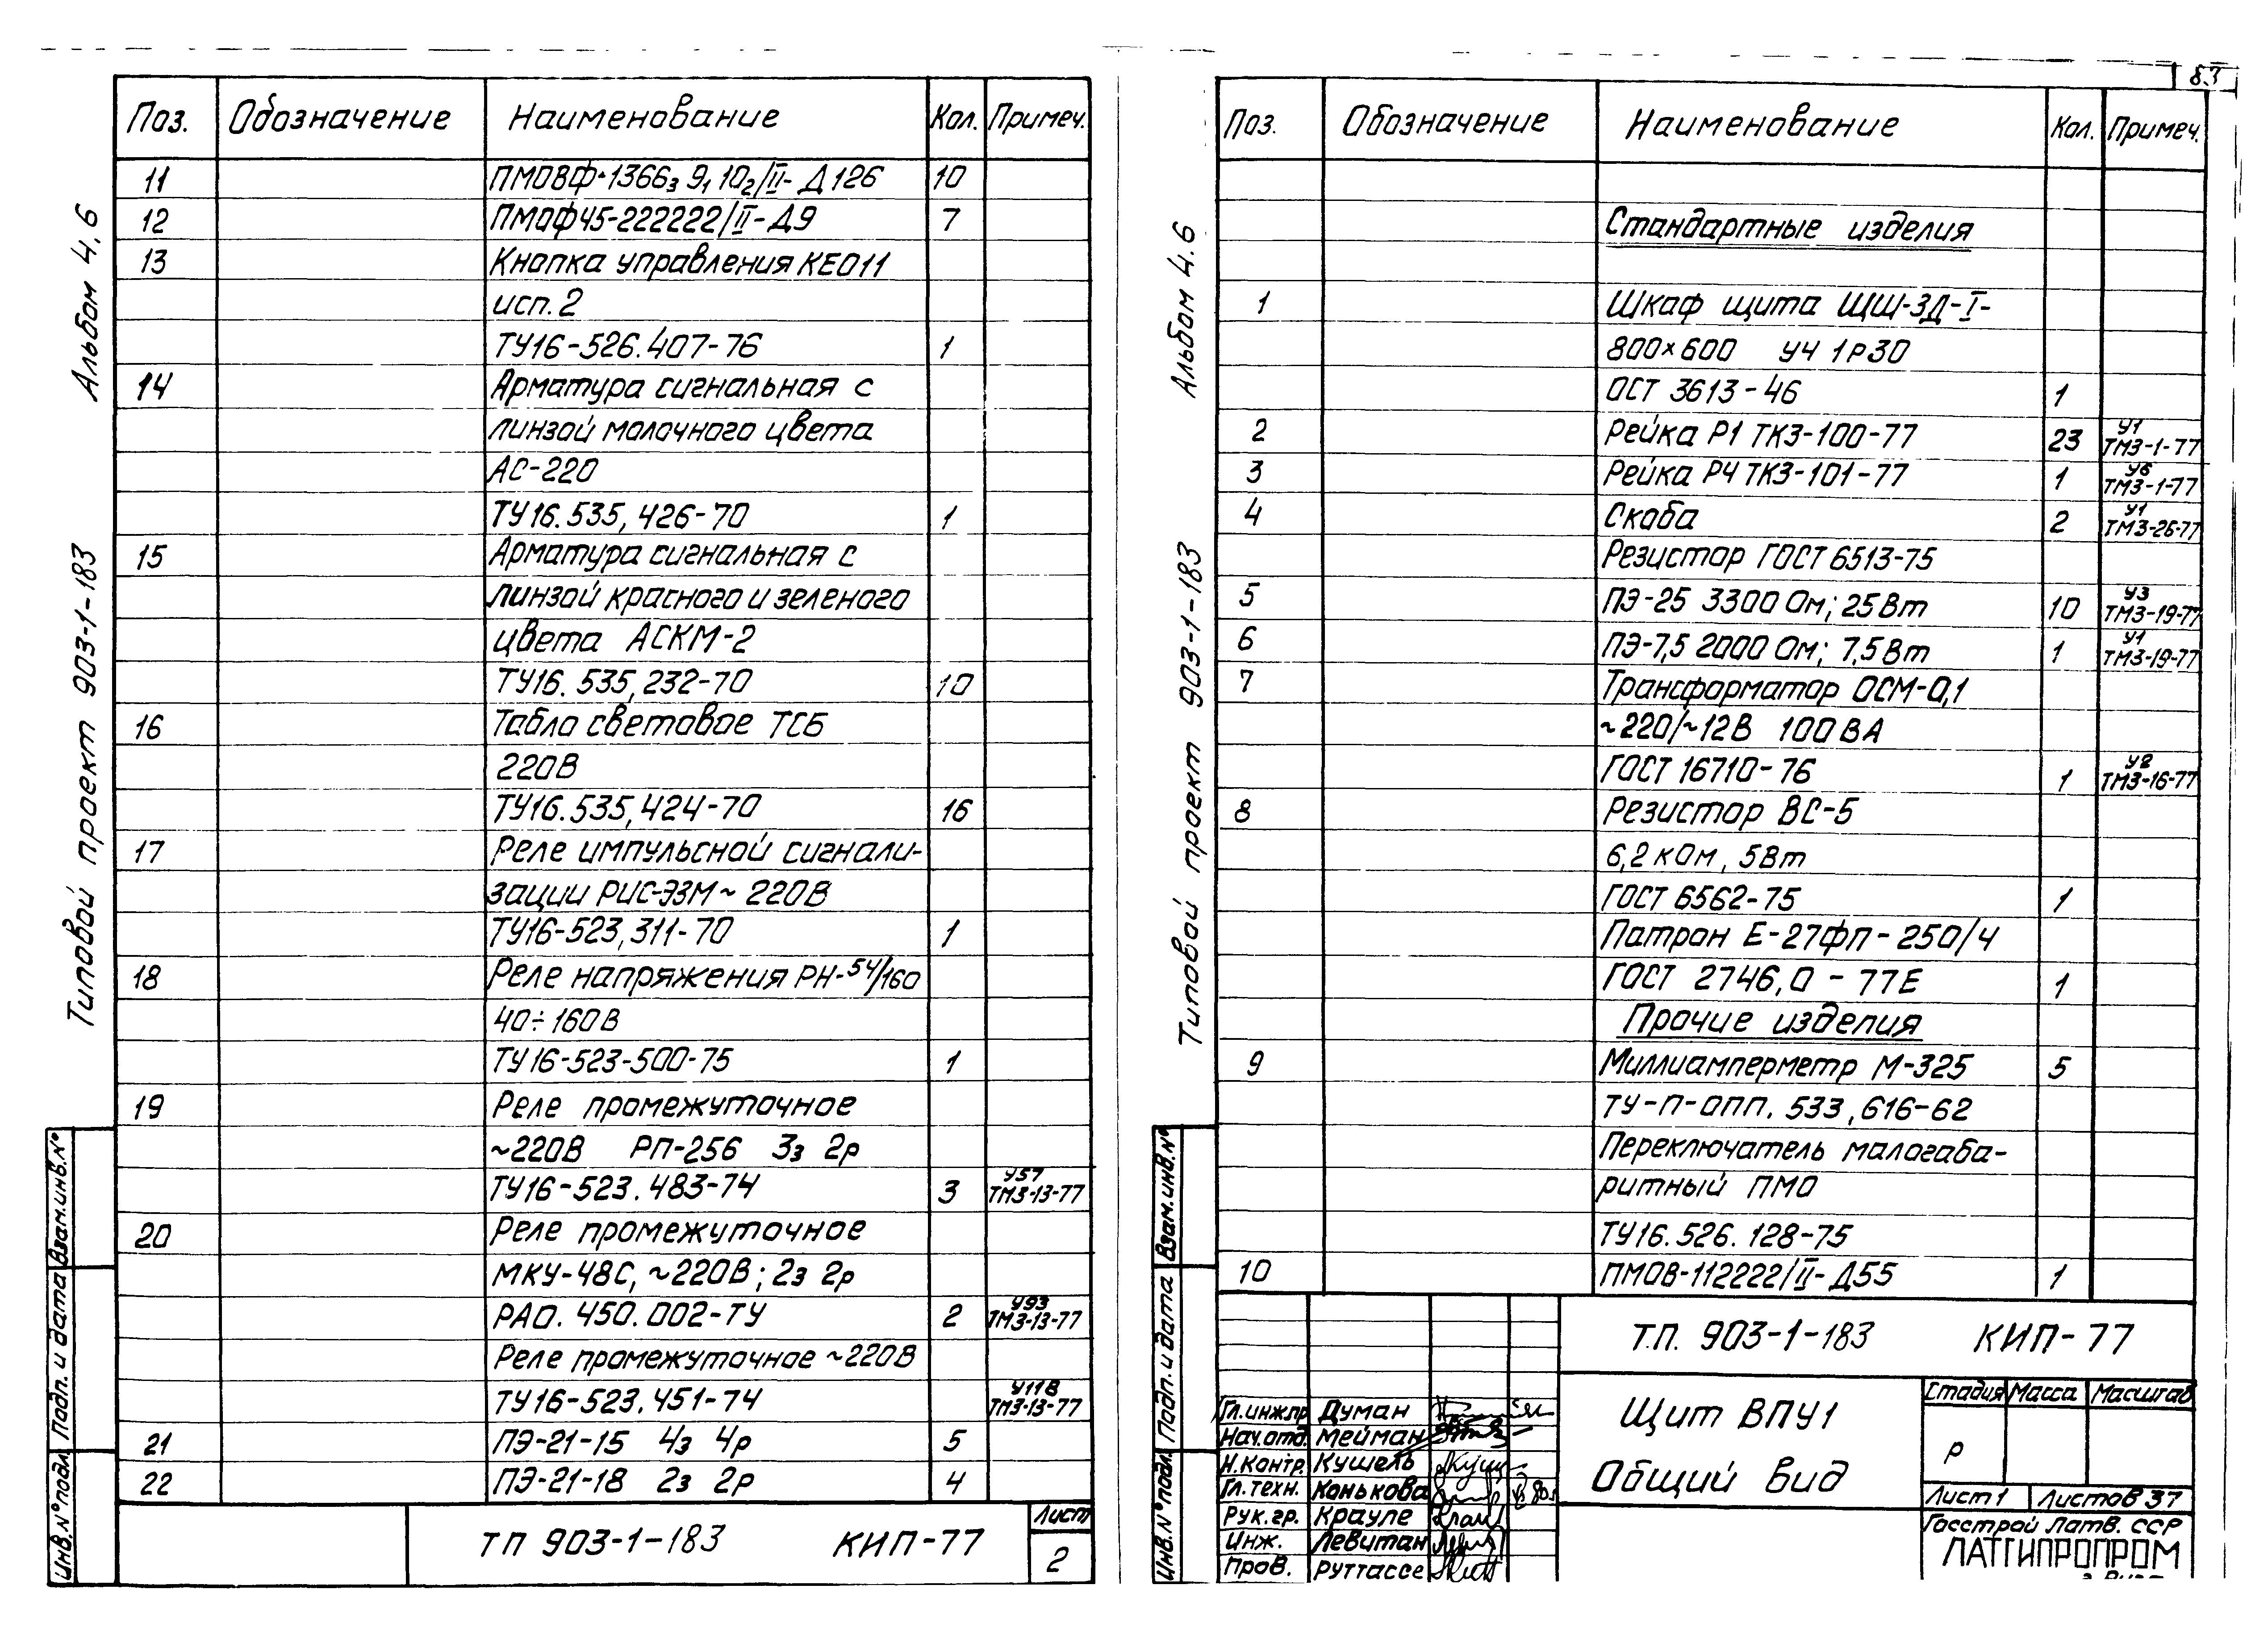 Альбом 4.6
Типовой проект 903-1-183
Поз. Обозначение Наименование Кол. Примеч.
11 ПМОВФ-1366з 9, 10₂/II-Д126 10
12 ПМОФ45-222222/II-Д9 7
13 Кнопка управления КЕ011
исп.2
ТУ16-526.407-76 1
14 Арматура сигнальная с
линзой молочного цвета
АС-220
ТУ16.535,426-70 1
15 Арматура сигнальная с
линзой красного и зеленого
цвета АСКМ-2
ТУ16.535,232-70 10
16 Табло световое ТСБ
220В
ТУ16.535,424-70 16
17 Реле импульсной сигнали-
зации РИС-ЭЗМ~ 220В
ТУ16-523,311-70 1
18 Реле напряжения РН-54/160
40÷160В
ТУ16-523-500-75 1
19 Реле промежуточное
~220В РП-256 3з 2р
ТУ16-523.483-74 3 У57 ТМ3-13-77
20 Реле промежуточное
МКУ-48С, ~220В; 2з 2р
РАО. 450.002-ТУ 2 У93 ТМ3-13-77
Реле промежуточное ~220В
ТУ16-523.451-74 У118 ТМ3-13-77
21 ПЭ-21-15 4з 4р 5
22 ПЭ-21-18 2з 2р 4
Взам.инв.№
Подп. и дата
Инв.№ подл.
ТП 903-1-183 КИП-77
Лист
2
8.3
Альбом 4.6
Типовой проект 903-1-183
Поз. Обозначение Наименование Кол. Примеч.
Стандартные изделия
1 Шкаф щита ЩШ-3Д-I-
800×600 У4 1Р30
ОСТ 3613-46 1
2 Рейка Р1 ТК3-100-77 23 У1 ТМ3-1-77
3 Рейка Р4 ТК3-101-77 1 У6 ТМ3-1-77
4 Скоба 2 У1 ТМ3-26-77
Резистор ГОСТ 6513-75
5 ПЭ-25 3300 Ом; 25Вт 10 У3 ТМ3-19-77
6 ПЭ-7,5 2000 Ом; 7,5Вт 1 У1 ТМ3-19-77
7 Трансформатор ОСМ-0,1
~220/~12В 100 ВА
ГОСТ 16710-76 1 У2 ТМ3-16-77
8 Резистор ВС-5
6,2 кОм, 5Вт
ГОСТ 6562-75 1
Патрон Е-27фп-250/4
ГОСТ 2746,0 - 77Е 1
Прочие изделия
9 Миллиамперметр М-325 5
ТУ-П-ОПП. 533,616-62
Переключатель малогаба-
ритный ПМО
ТУ16.526. 128-75
10 ПМОВ-112222/II-Д55 1
Взам.инв.№
Подп. и дата
Инв.№ подл.
Т.П. 903-1-183 КИП-77
Гл.инж.пр Думан
Нач.отд. Мейман
Н.контр. Кушель
Гл.техн. Конькова
Рук.гр. Крауле
Инж. Левитан
Пров. Руттассе
Щит ВПУ1
Общий вид
Стадия Масса Масштаб
Р
Лист 1 Листов 37
Госстрой Латв. ССР
ЛАТГИПРОПРОМ